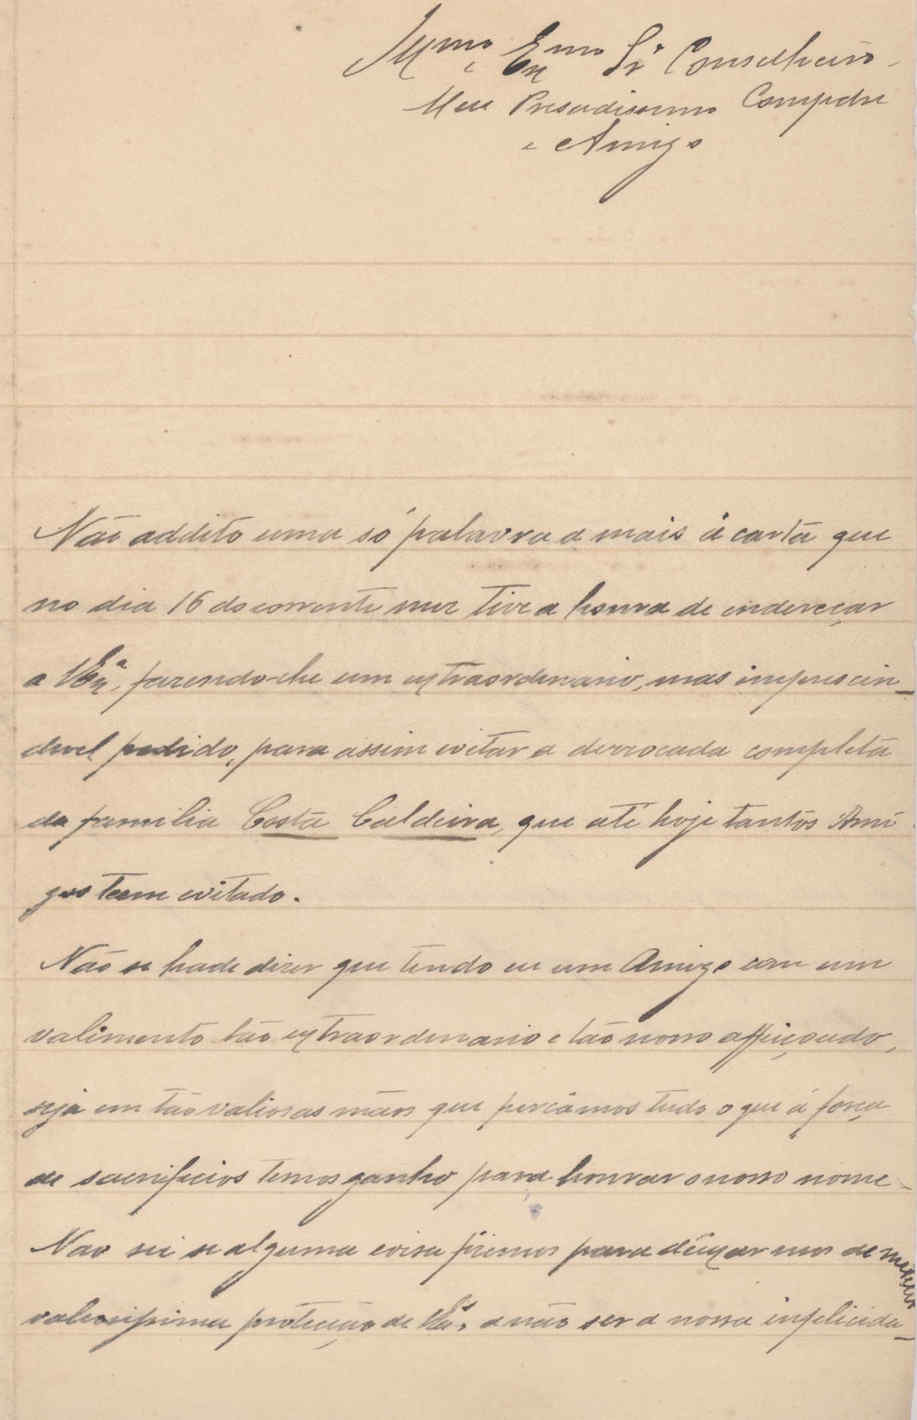 Illmo e Exmo Sr Conselheiro.
Meu Presadissimo Compdre
e Amigo
Não addito uma só palavra a mais á carta que
no dia 16 do corrente mez tive a honra de endereçar
a VExª, fazendo-lhe um extraordenario, mas imprescin-
divel pedido, para assim evitar a derrocada completa
da familia Costa Caldeira, que até hoje tantos Ami
gos teem evitado.
Não se hade dizer que tendo eu um Amigo com um
valimento tão extraordenario e tão nosso affeiçoado,
seja em tão valiosas mãos que percâmos tudo o que á força
de sacrificios temos ganho para honrar o nosso nome
Nao sei se alguma coisa fizemos para deixarmos de merecer
valiosissima proteção de VExª, a não ser a nossa infelicida-